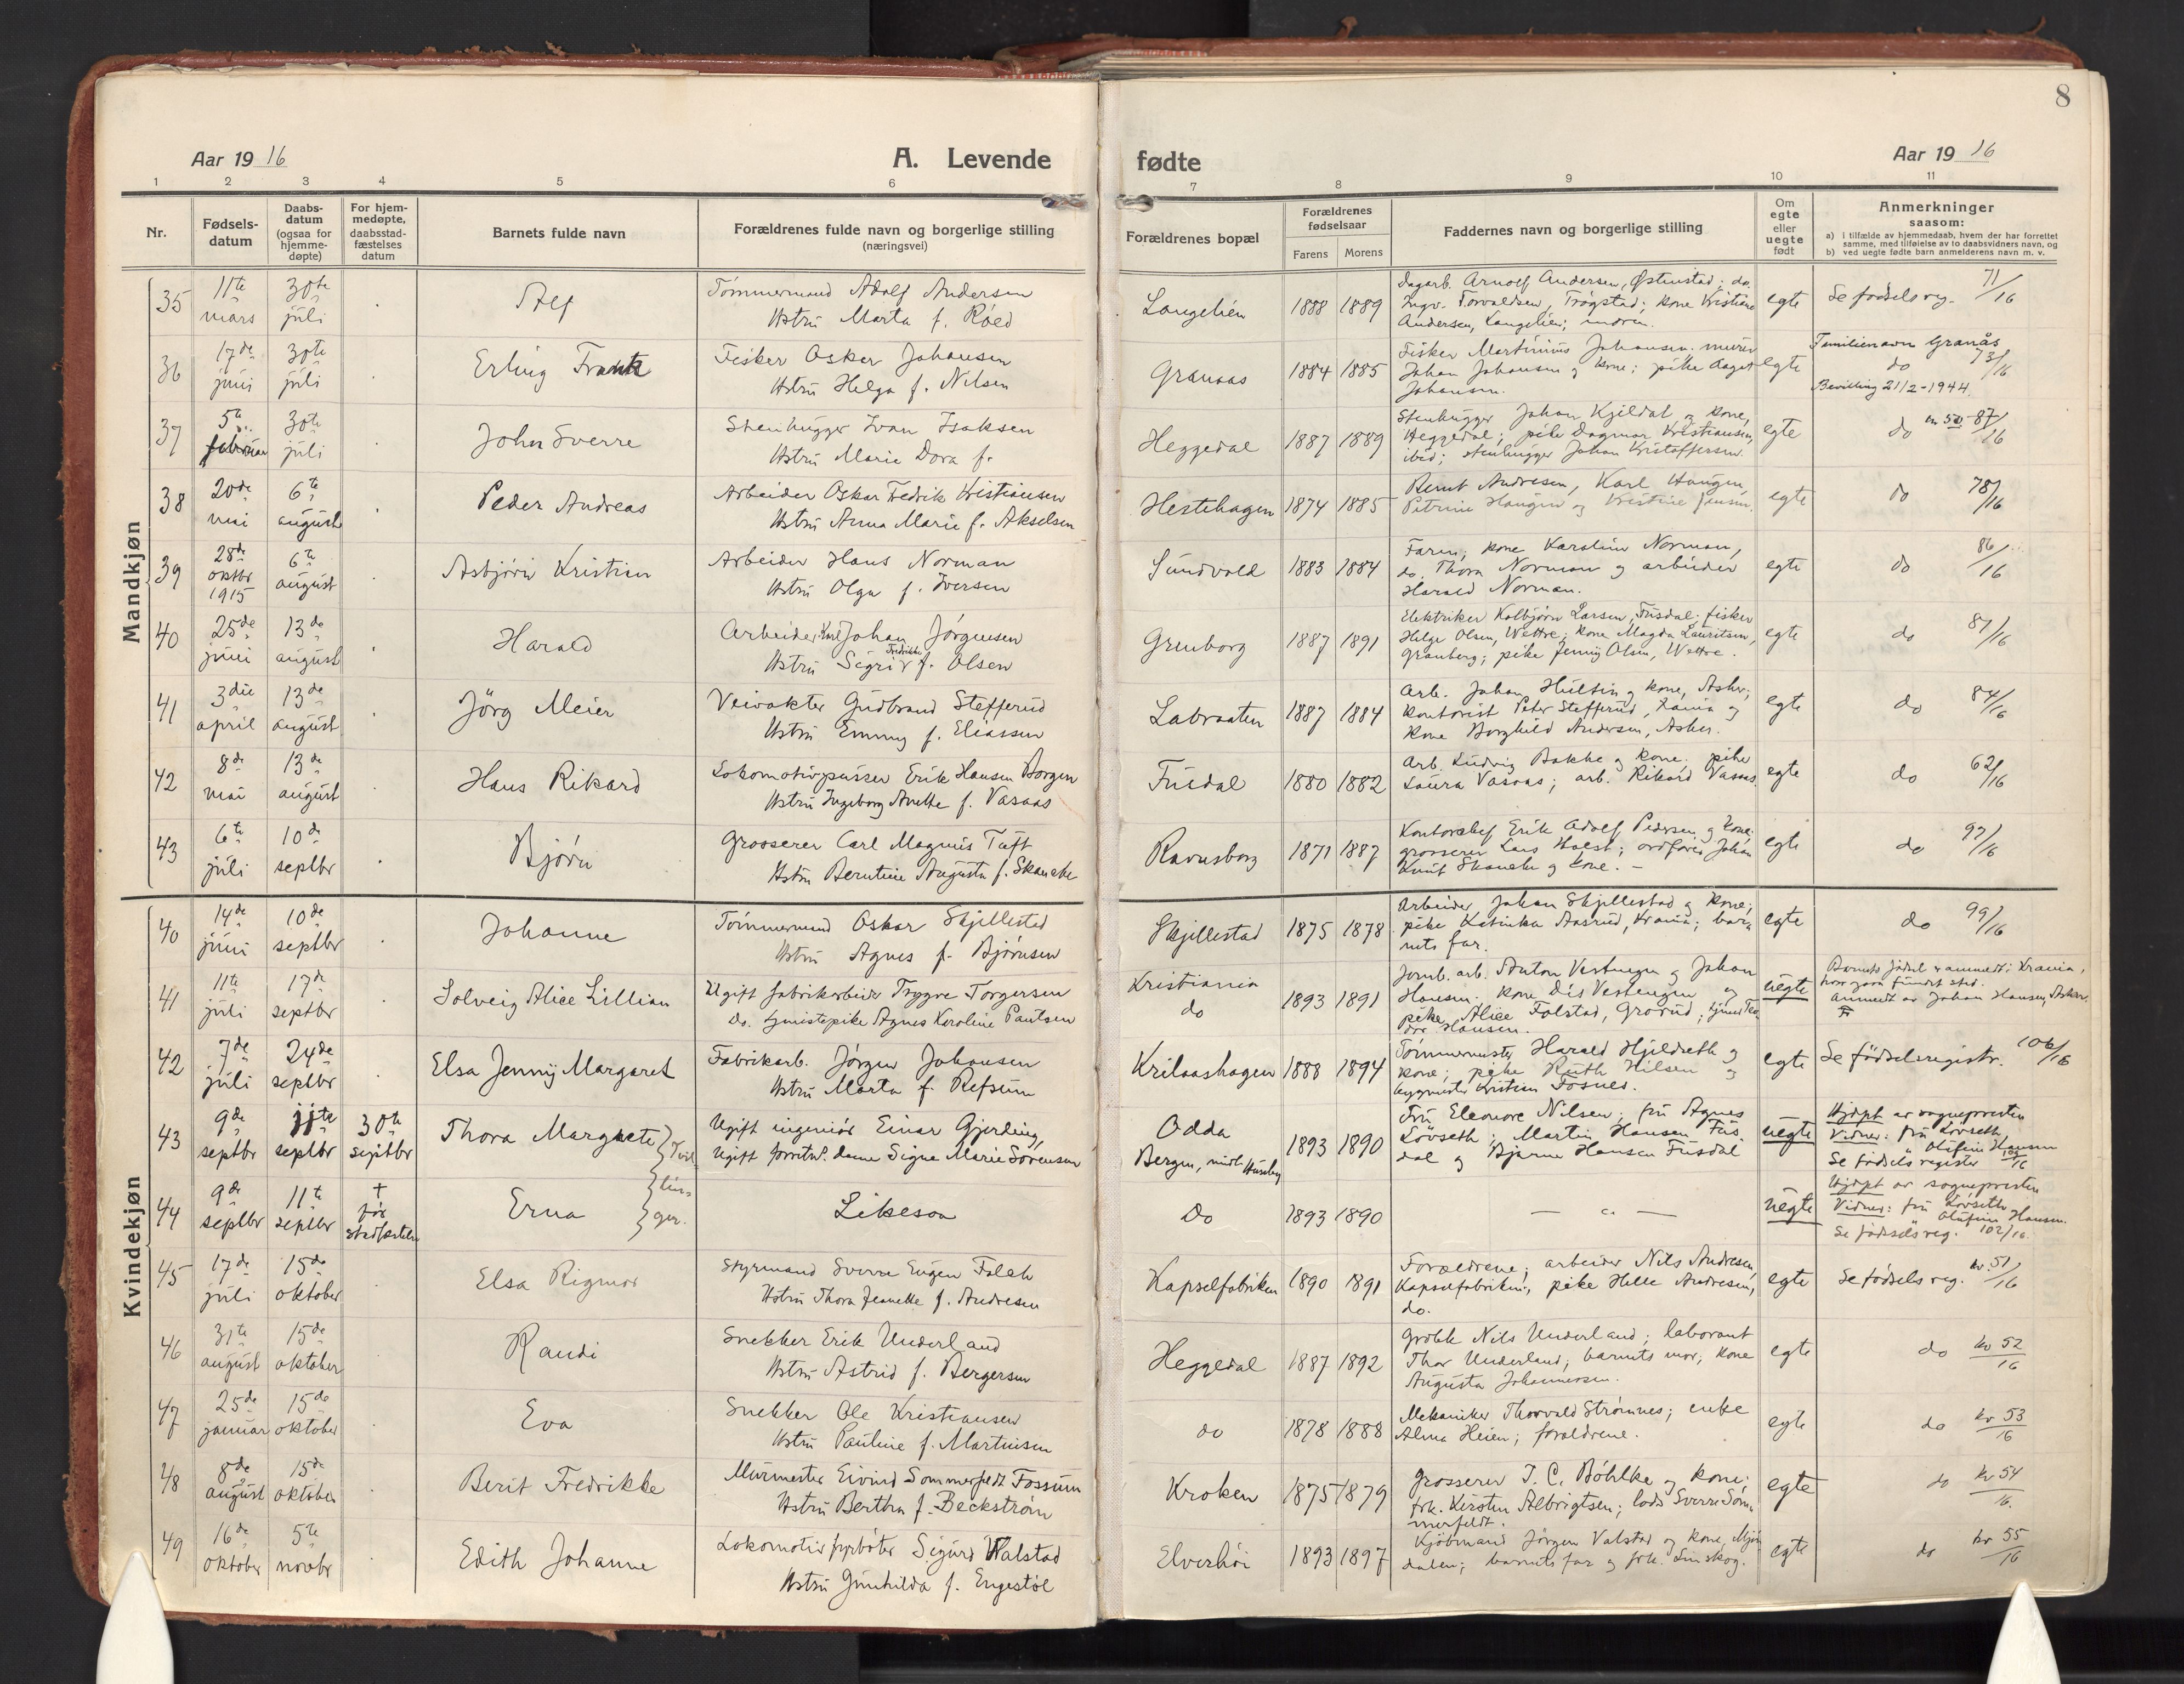 8
Aar 1916
A. Levende fødte
Aar 1916
1 2 3 4 5 6 7 8 9 10 11
Nr.
Fødsels-
datum
Daabs-
datum
(ogsaa for
hjemme-
døpte)
For hjem-
medøpte,
daabsstad-
fæstelses
datum
Barnets fulde navn
Forældrenes fulde navn og borgerlige stilling
(næringsvei)
Forældrenes bopæl
Forældrenes
fødselsaar
Farens Morens
Faddernes navn og borgerlige stilling
Om
egte
eller
uegte
født
Anmerkninger
saasom:
a) i tilfælde av hjemmedaab, hvem der har forrettet
samme, med tilføielse av to daabsvidners navn, og
b) ved uegte fødte barn anmelderens navn m. v.
Mandkjøn
35 11te mars 30te juli Alf
Tømmermand Adolf Andersen
Hstru Marta f. Røed
Langelien 1888 1889
Dagarb. Arnolf Andersen, Østenstad; do.
Ingv. Torvaldsen, Trøgstad; kone Kristiane
Andersen, Langelien; moren.
egte Se fødselsreg. 71/16
36 17de juni 30te juli Erling Frank
Fisker Oskar Johansen
Hstru Helga f. Nilsen
Granaas 1884 1885
Fisker Martinius Johansen. murer
Johan Johansen og kone; pike Aagot
Johansen.
egte
Familienavn Granås
do 73/16
Bevilling 21/2-1944.
37 5te februar 30te juli John Sverre
Stenhugger Ivan Isaksen
Hstru Marie Dora f.
Heggedal 1887 1889
Stenhugger Johan Kjeldal og kone,
Heggedal; pike Dagmar Kristiansen,
ibid; stenhugger Johan Kristoffersen.
egte do 87/16
38 20de mai 6te august Peder Andreas
Arbeider Oskar Fredrik Kristiansen
Hstru Anna Marie f. Akselsen
Hestehagen 1874 1885
Bernt Andresen, Karl Haugen,
Petrine Haugen og Kristine Jensen.
egte do 78/16
39 28de oktbr 1915 6te august Asbjørn Kristian
Arbeider Hans Norman
Hstru Olga f. Iversen
Sundvold 1883 1884
Faren; kone Karoline Norman,
do. Thora Norman og arbeider
Harald Norman.
egte do 86/16
40 25de juni 13de august Harald
Arbeider Karl Johan Jørgensen
Hstru Sigrid Fredrikke f. Olsen
Grenborg 1887 1891
Elektriker Kolbjørn Larsen, Fusdal; fisker
Helge Olsen, Wettre; kone Magda Lauritsen,
Granberg; pike Jenny Olsen, Wettre.
egte do 81/16
41 3die april 13de august Jörg Meier
Veivokter Gudbrand Stefferud
Hstru Emmy f. Eliassen
Labraaten 1887 1884
Arb. Johan Hultin og kone, Asker;
kontorist Peter Stefferud, Krania og
kone Borghild Andersen, Asker.
egte do 84/16
42 8de mai 13de august Hans Rikard
Lokomotivpusser Erik Hansen Borgen
Hstru Ingeborg Anethe f. Vasaas
Fusdal 1880 1882
Arb. Ludvig Bakke og kone. pike
Laura Vasaas; arb. Rikard Vasaas.
egte do 62/16
43 6te juli 10de septbr Bjørn
Grosserer Carl Magnus Tuft
Hstru Berntine Augusta f. Skanche
Ravnsborg 1871 1887
Kontorchef Erik Adolf Pedersen og kone.
grosserer Lars Holst; ordfører Johan
Knut Skanche og kone. –
egte do 97/16
Kvindekjøn
40 14de juni 10de septbr Johanne
Tømmermand Oskar Skjellestad
Hstru Agnes f. Bjørnsen
Skjellestad 1875 1878
Arbeider Johan Skjellestad og kone;
pike Katinka Aasrud, Krania; bar-
nets far.
egte do 99/16
41 11te juli 17de septbr Solveig Alice Lillian
Ugift fabrikarbeider Trygve Torgersen
Do. tjenestepike Agnes Karoline Paulsen
Kristiania do 1893 1891
Jernb. arb. Anton Vestengen og Johan
Hansen. kone Dis Vestengen og
pike Alice Folstad, Grorud; Teo-
dor Hansen.
uegte
Barnets fødsel anmeldt i Krania,
hvor funnet sted.
Anmeldt av Johan Hansen, Asker.
42 7de juli 24de septbr Elsa Jenny Margaret
Fabrikarb. Jørgen Johansen
Hstru Marta f. Refsum
Krilaashagen 1888 1894
Tømmermester Harald Hjeldseth og
kone; pike Ruth Nilsen og
byggmester Kristian Fosnes.
egte Se fødselsregistr. 106/16
43 9de septbr 11te septbr 30te septbr Thora Margrete } Tvil-
Ugift ingeniør Einar Gjerding,
Ugift forretn. dame Signe Marie Sørensen
Odda
Bergen, midl. Huseby
1893 1890
Fru Eleonore Nilsen; fru Agnes
Lövseth; Martin Hansen Fus-
dal og Bjarne Hansen Fusdal
uegte
Hjdøpt av sogneprcsten
Vidner: fru Lövseth
" Olufine Hansen
Se fødselsregister 16
44 9de septbr 11te septbr † før stadfæstelse Erna } lin-
ger.
Likesom
Do 1893 1890
– " –
uegte
Hjdøpt av sognepresten
Vidner: fru Lövseth
" Olufine Hansen.
Se fødselsreg. 102/16
45 17de juli 15de oktober Elsa Rigmor
Styrmand Sverre Eugen Falch
Hstru Thora Jeanette f. Andresen
Kapselfabriken 1890 1891
Forældrene; arbeider Nils Andresen,
Kapselfabriken, pike Helle Andresen,
do.
egte Se fødselsreg. kv. 51/16
46 31te august 15de oktober Randi
Snekker Erik Underland
Hstru Astrid f. Bergersen
Heggedal 1887 1892
Grobk Nils Underland; laborant
Thor Underland; barnets mor; kone
Augusta Johannessen.
egte do kv 52/16
47 25de januar 15de oktober Eva
Snekker Ole Kristiansen
Hstru Pauline f. Martinsen
do 1878 1888
Mekaniker Thorvald Strømnes; enke
Alma Heien; forældrene.
egte do kv 53/16
48 8de august 15de oktober Berit Fredrikke
Murmester Eivind Sommerfeldt Fossum
Hstru Berthа f. Beckstrøm
Kroken 1875 1879
Grosserer T. C. Bøhlke og kone;
frk. Kirsten Albrigtsen; lods Sverre Som-
merfeldt.
egte do kv 54/16
49 16de oktober 5te novbr Edith Johanne
Lokomotivfyrbøter Sigurd Walstad
Hstru Gunhilda f. Engestøl
Elverhøi 1893 1897
Kjøbmand Jørgen Valstad og kone, Mjøn-
dalen; barnets far og frk. Linskog.
egte do kv 55/16